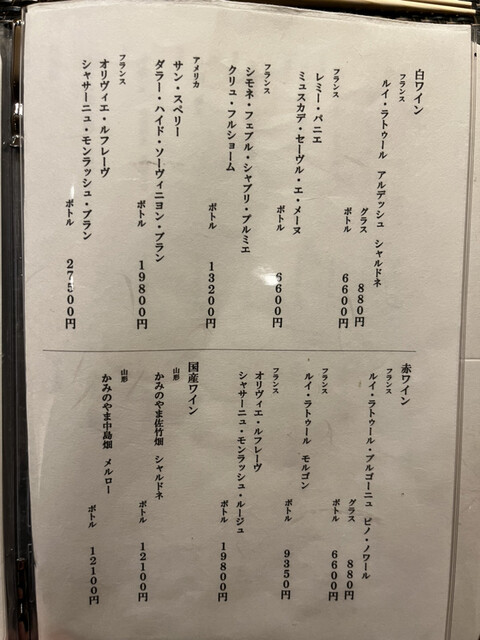 白ワイン
フランス
ルイ・ラトゥール アルデッシュ シャルドネ
グラス 880円
ボトル 6600円
フランス
レミー・パニエ
ミュスカデ・セーヴル・エ・メーヌ
ボトル 6600円
フランス
シモネ・フェブル・シャブリ・プルミエ
クリュ・フルショーム
ボトル 13200円
アメリカ
サン・スペリー
ダラー・ハイド・ソーヴィニヨン・ブラン
ボトル 19800円
フランス
オリヴィエ・ルフレーヴ
シャサーニュ・モンラッシュ・ブラン
ボトル 27500円
赤ワイン
フランス
ルイ・ラトゥール・ブルゴーニュ ピノ・ノワール
グラス 880円
ボトル 6600円
フランス
ルイ・ラトゥール モルゴン
ボトル 9350円
フランス
オリヴィエ・ルフレーヴ
シャサーニュ・モンラッシュ・ルージュ
ボトル 19800円
国産ワイン
山形
かみのやま佐竹畑 シャルドネ
ボトル 12100円
山形
かみのやま中島畑 メルロー
ボトル 12100円